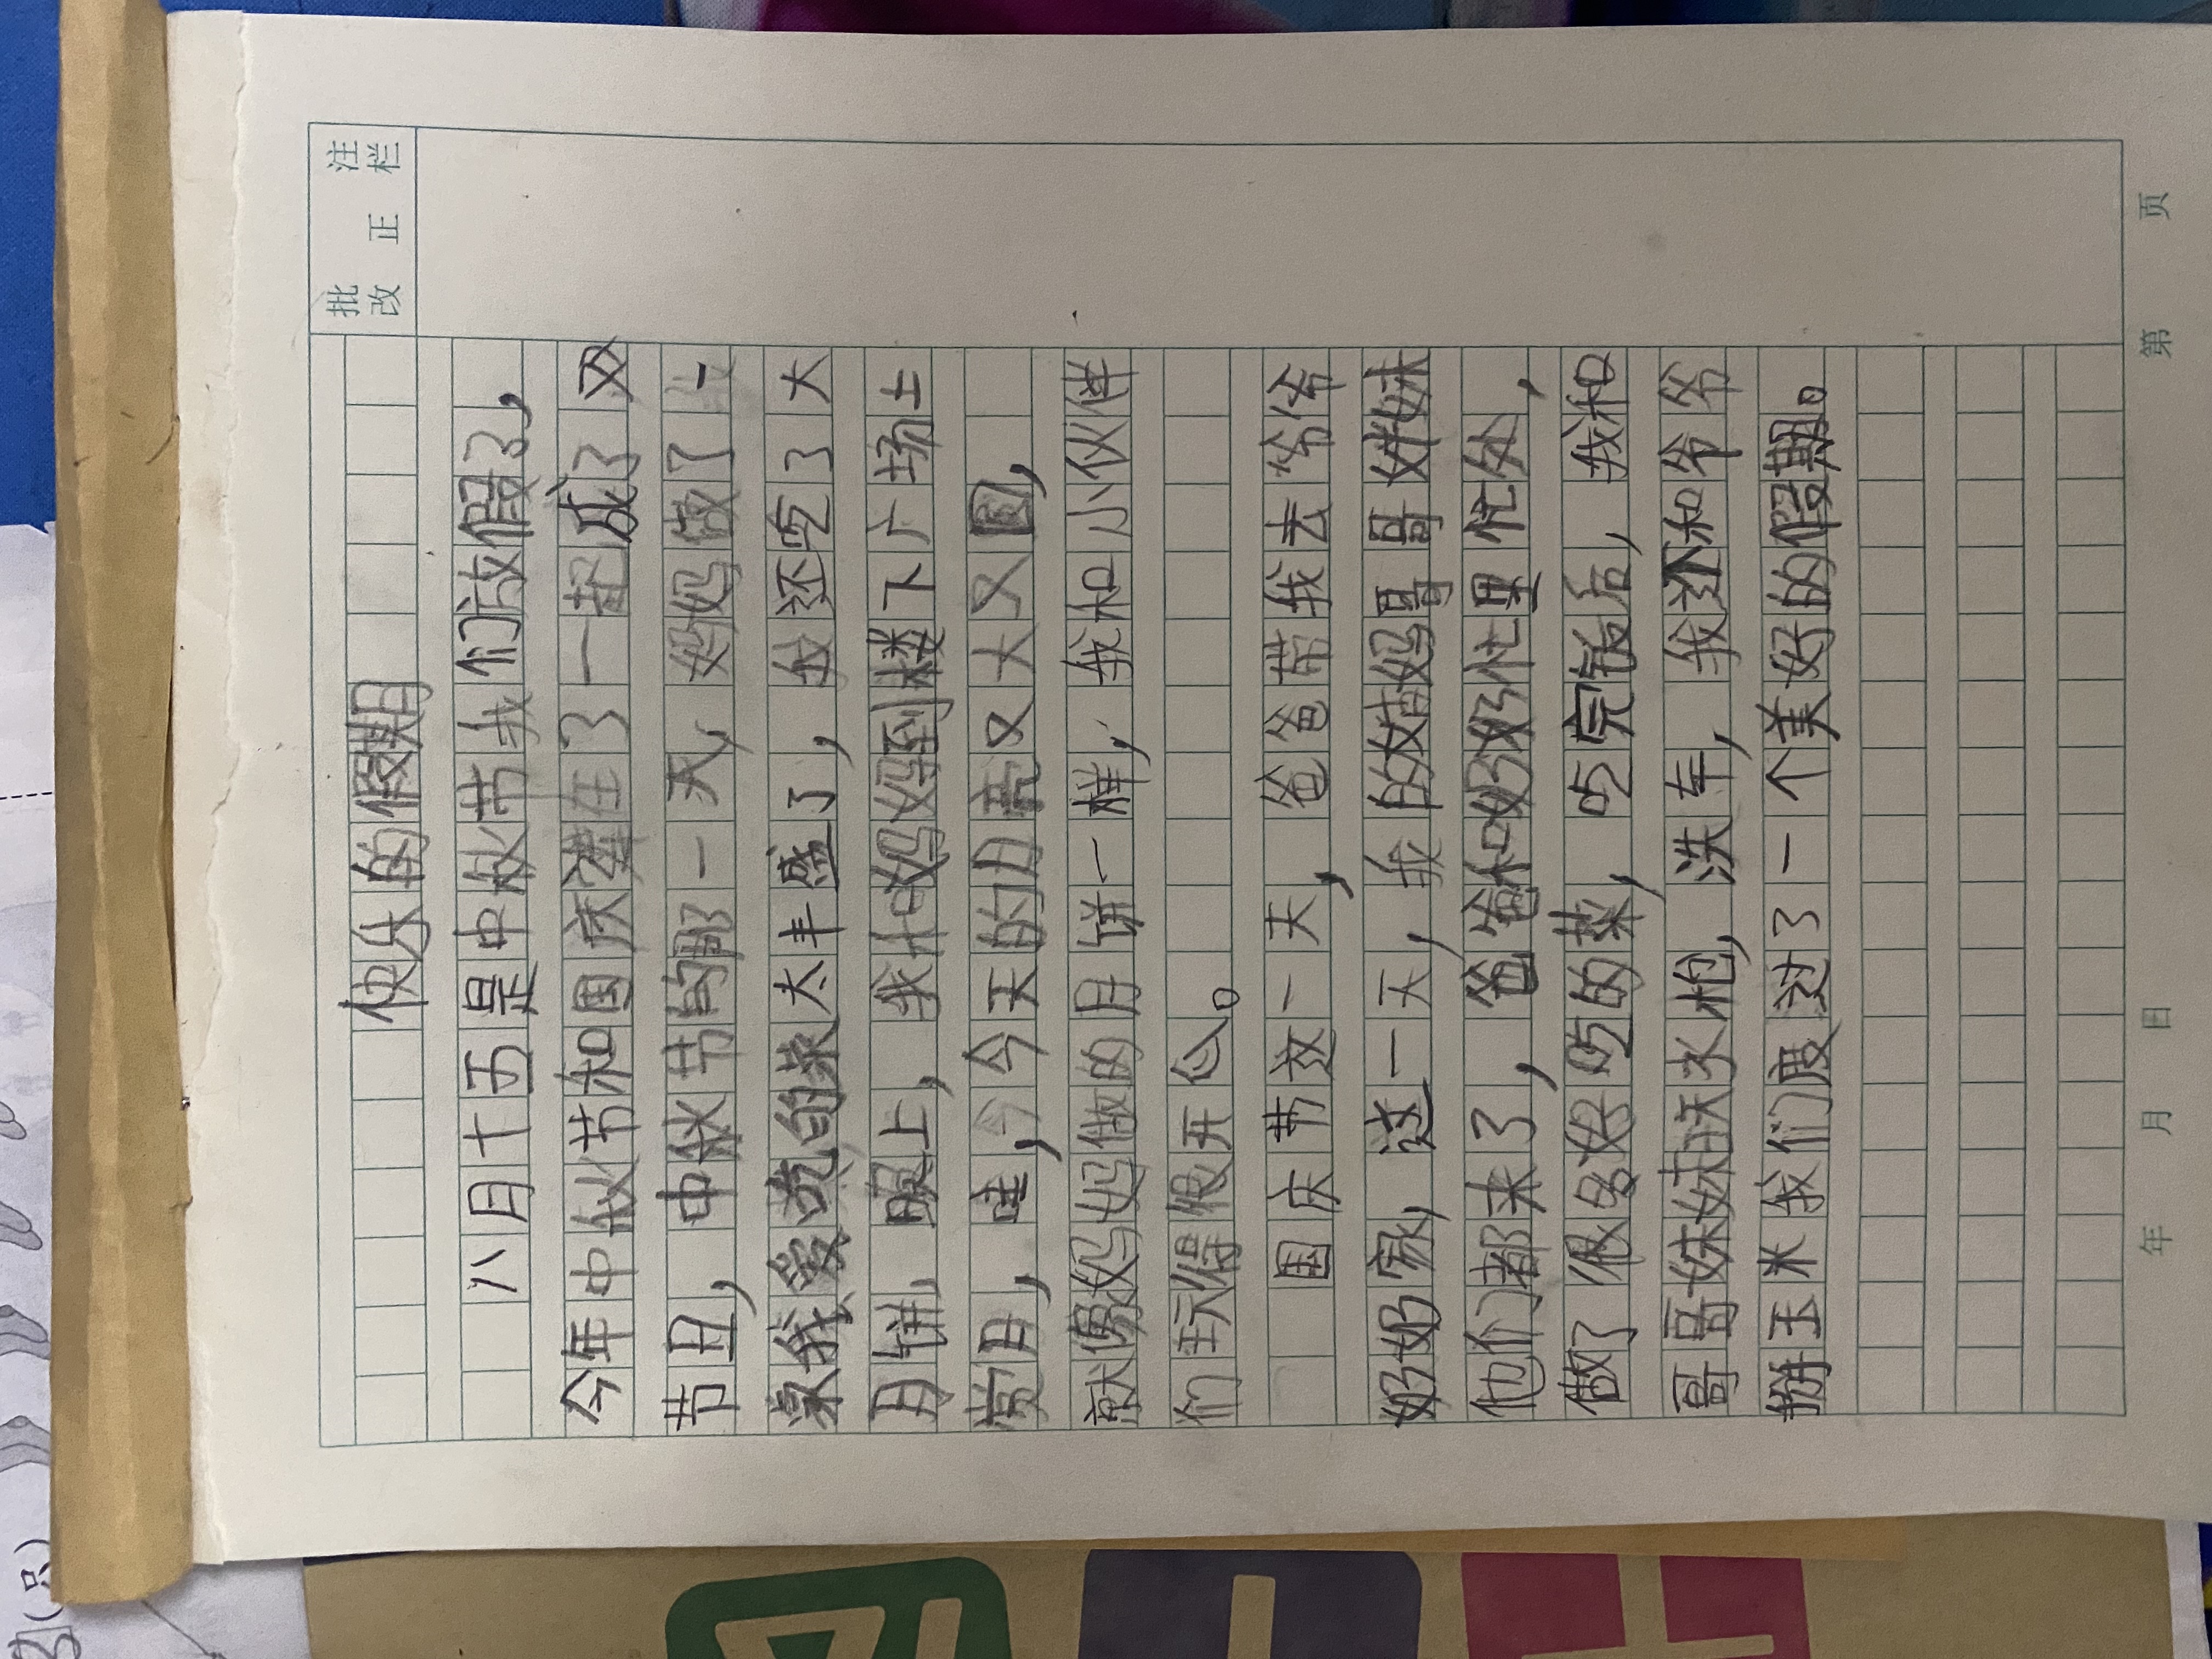 批 注
改 正 栏
快乐的假期
八月十五是中秋节我们放假了，
今年中秋节和国庆撞在了一起成了双
节日，中秋节的那一天，妈妈做了一
桌我爱吃的菜太丰盛了，我还吃了大
月饼，晚上，我和妈妈到楼下广场上
赏月，哇，今天的月亮又大又圆，
就像妈妈做的月饼一样，我和小伙伴
们玩得很开心。
国庆节这一天，爸爸带我去爷爷
奶奶家，这一天，我的姑妈哥哥姐妹
他们都来了，爸爸和奶奶忙里忙外，
做了很多好吃的菜，吃完饭后，我和
哥哥妹妹玩水枪，洗车，我还和爷爷
掰玉米我们度过了一个美好的假期。
年 月 日 第 页